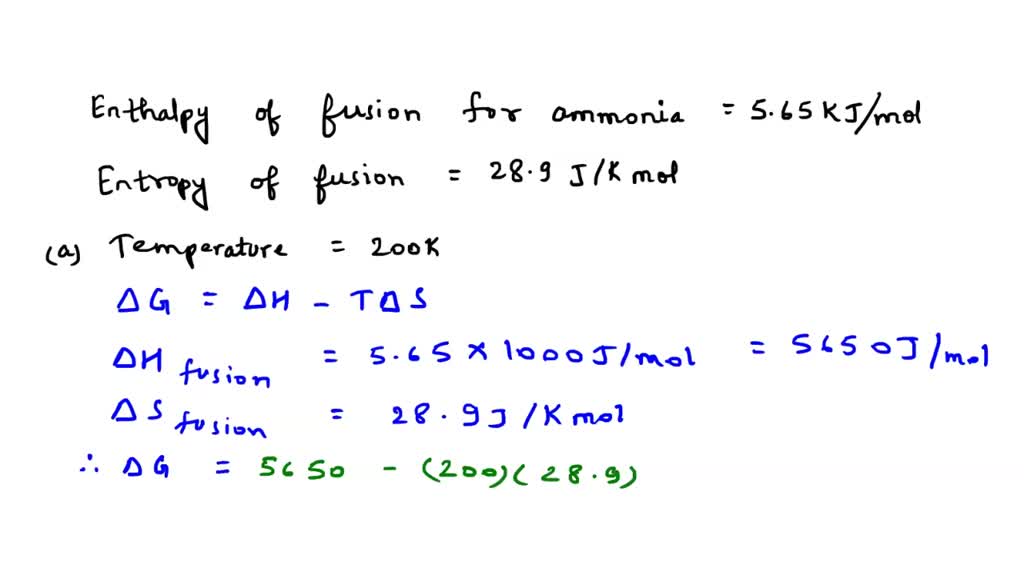 Enthalpy of fusion for ammonia = 5.65 KJ/mol
Entropy of fusion = 28.9 J/K mol
(a) Temperature = 200K
ΔG = ΔH - TΔS
ΔH fusion = 5.65 × 1000 J/mol = 5650 J/mol
ΔS fusion = 28.9 J/K mol
∴ ΔG = 5650 - (200)(28.9)